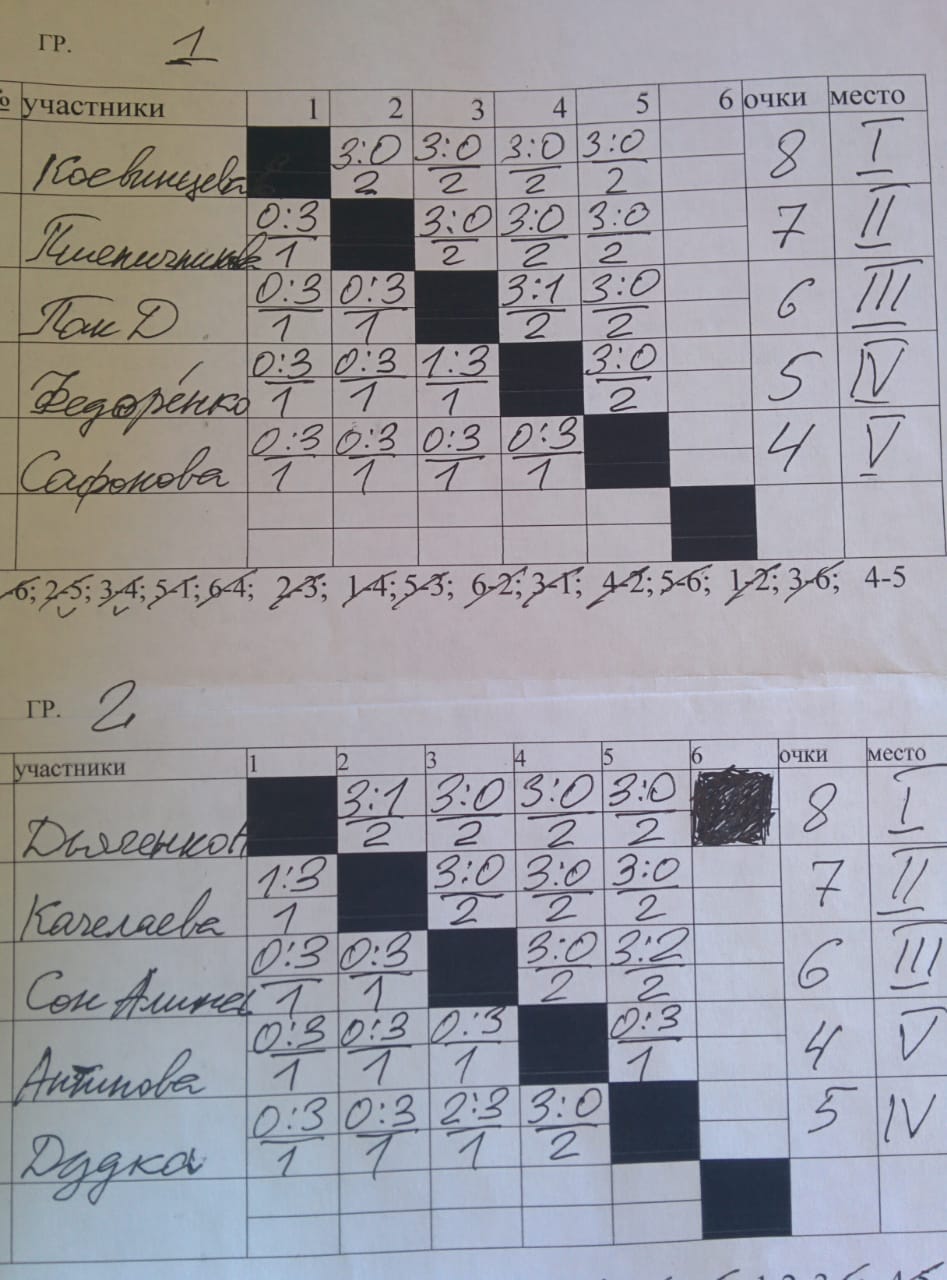 ГР. 1
№ участники 1 2 3 4 5 6 очки место
3:0 3:0 3:0 3:0
Коевинцева 2 2 2 2 8 I
0:3 3:0 3:0 3:0
Пшеничникова 1 2 2 2 7 II
0:3 0:3 3:1 3:0
Пак Д 1 1 2 2 6 III
0:3 0:3 1:3 3:0
Федоре́нко 1 1 1 2 5 IV
0:3 0:3 0:3 0:3
Сафонова 1 1 1 1 4 V
-6; 2-5; 3-4; 5-1; 6-4; 2-3; 1-4; 5-3; 6-2; 3-1; 4-2; 5-6; 1-2; 3-6; 4-5
ГР. 2
участники 1 2 3 4 5 6 очки место
3:1 3:0 3:0 3:0
2 2 2 2 8 I
1:3 3:0 3:0 3:0
Качелаева 1 2 2 2 7 II
0:3 0:3 3:0 3:2
Сон Алина 1 1 2 2 6 III
0:3 0:3 0:3 0:3
Антипова 1 1 1 1 4 V
0:3 0:3 2:3 3:0
Дудка 1 1 1 2 5 IV